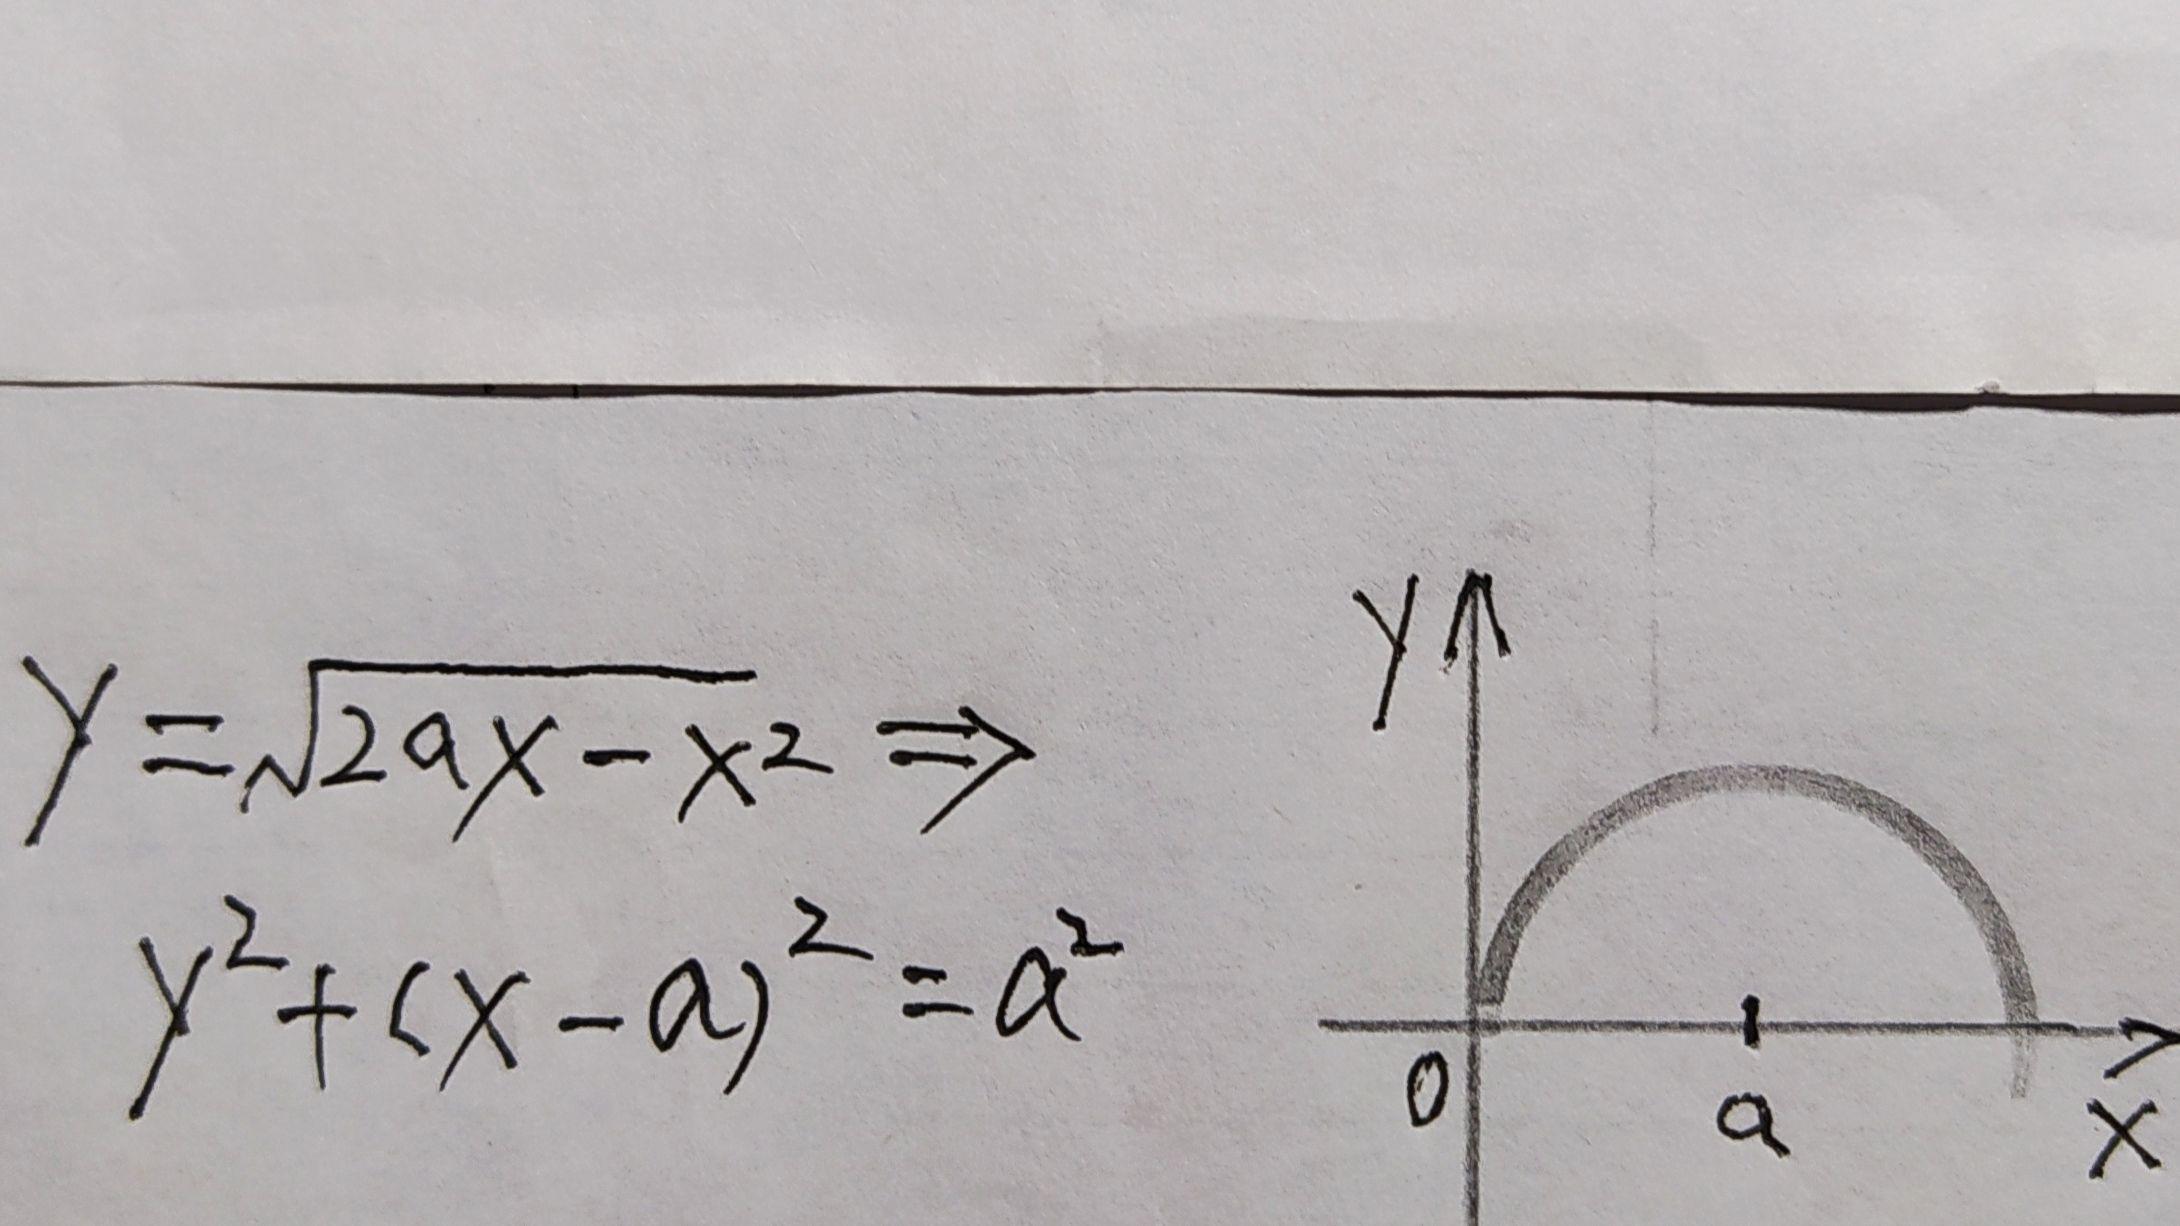 y = √2ax - x² ⇒
y² + (x - a)² = a²
y
0
a
x